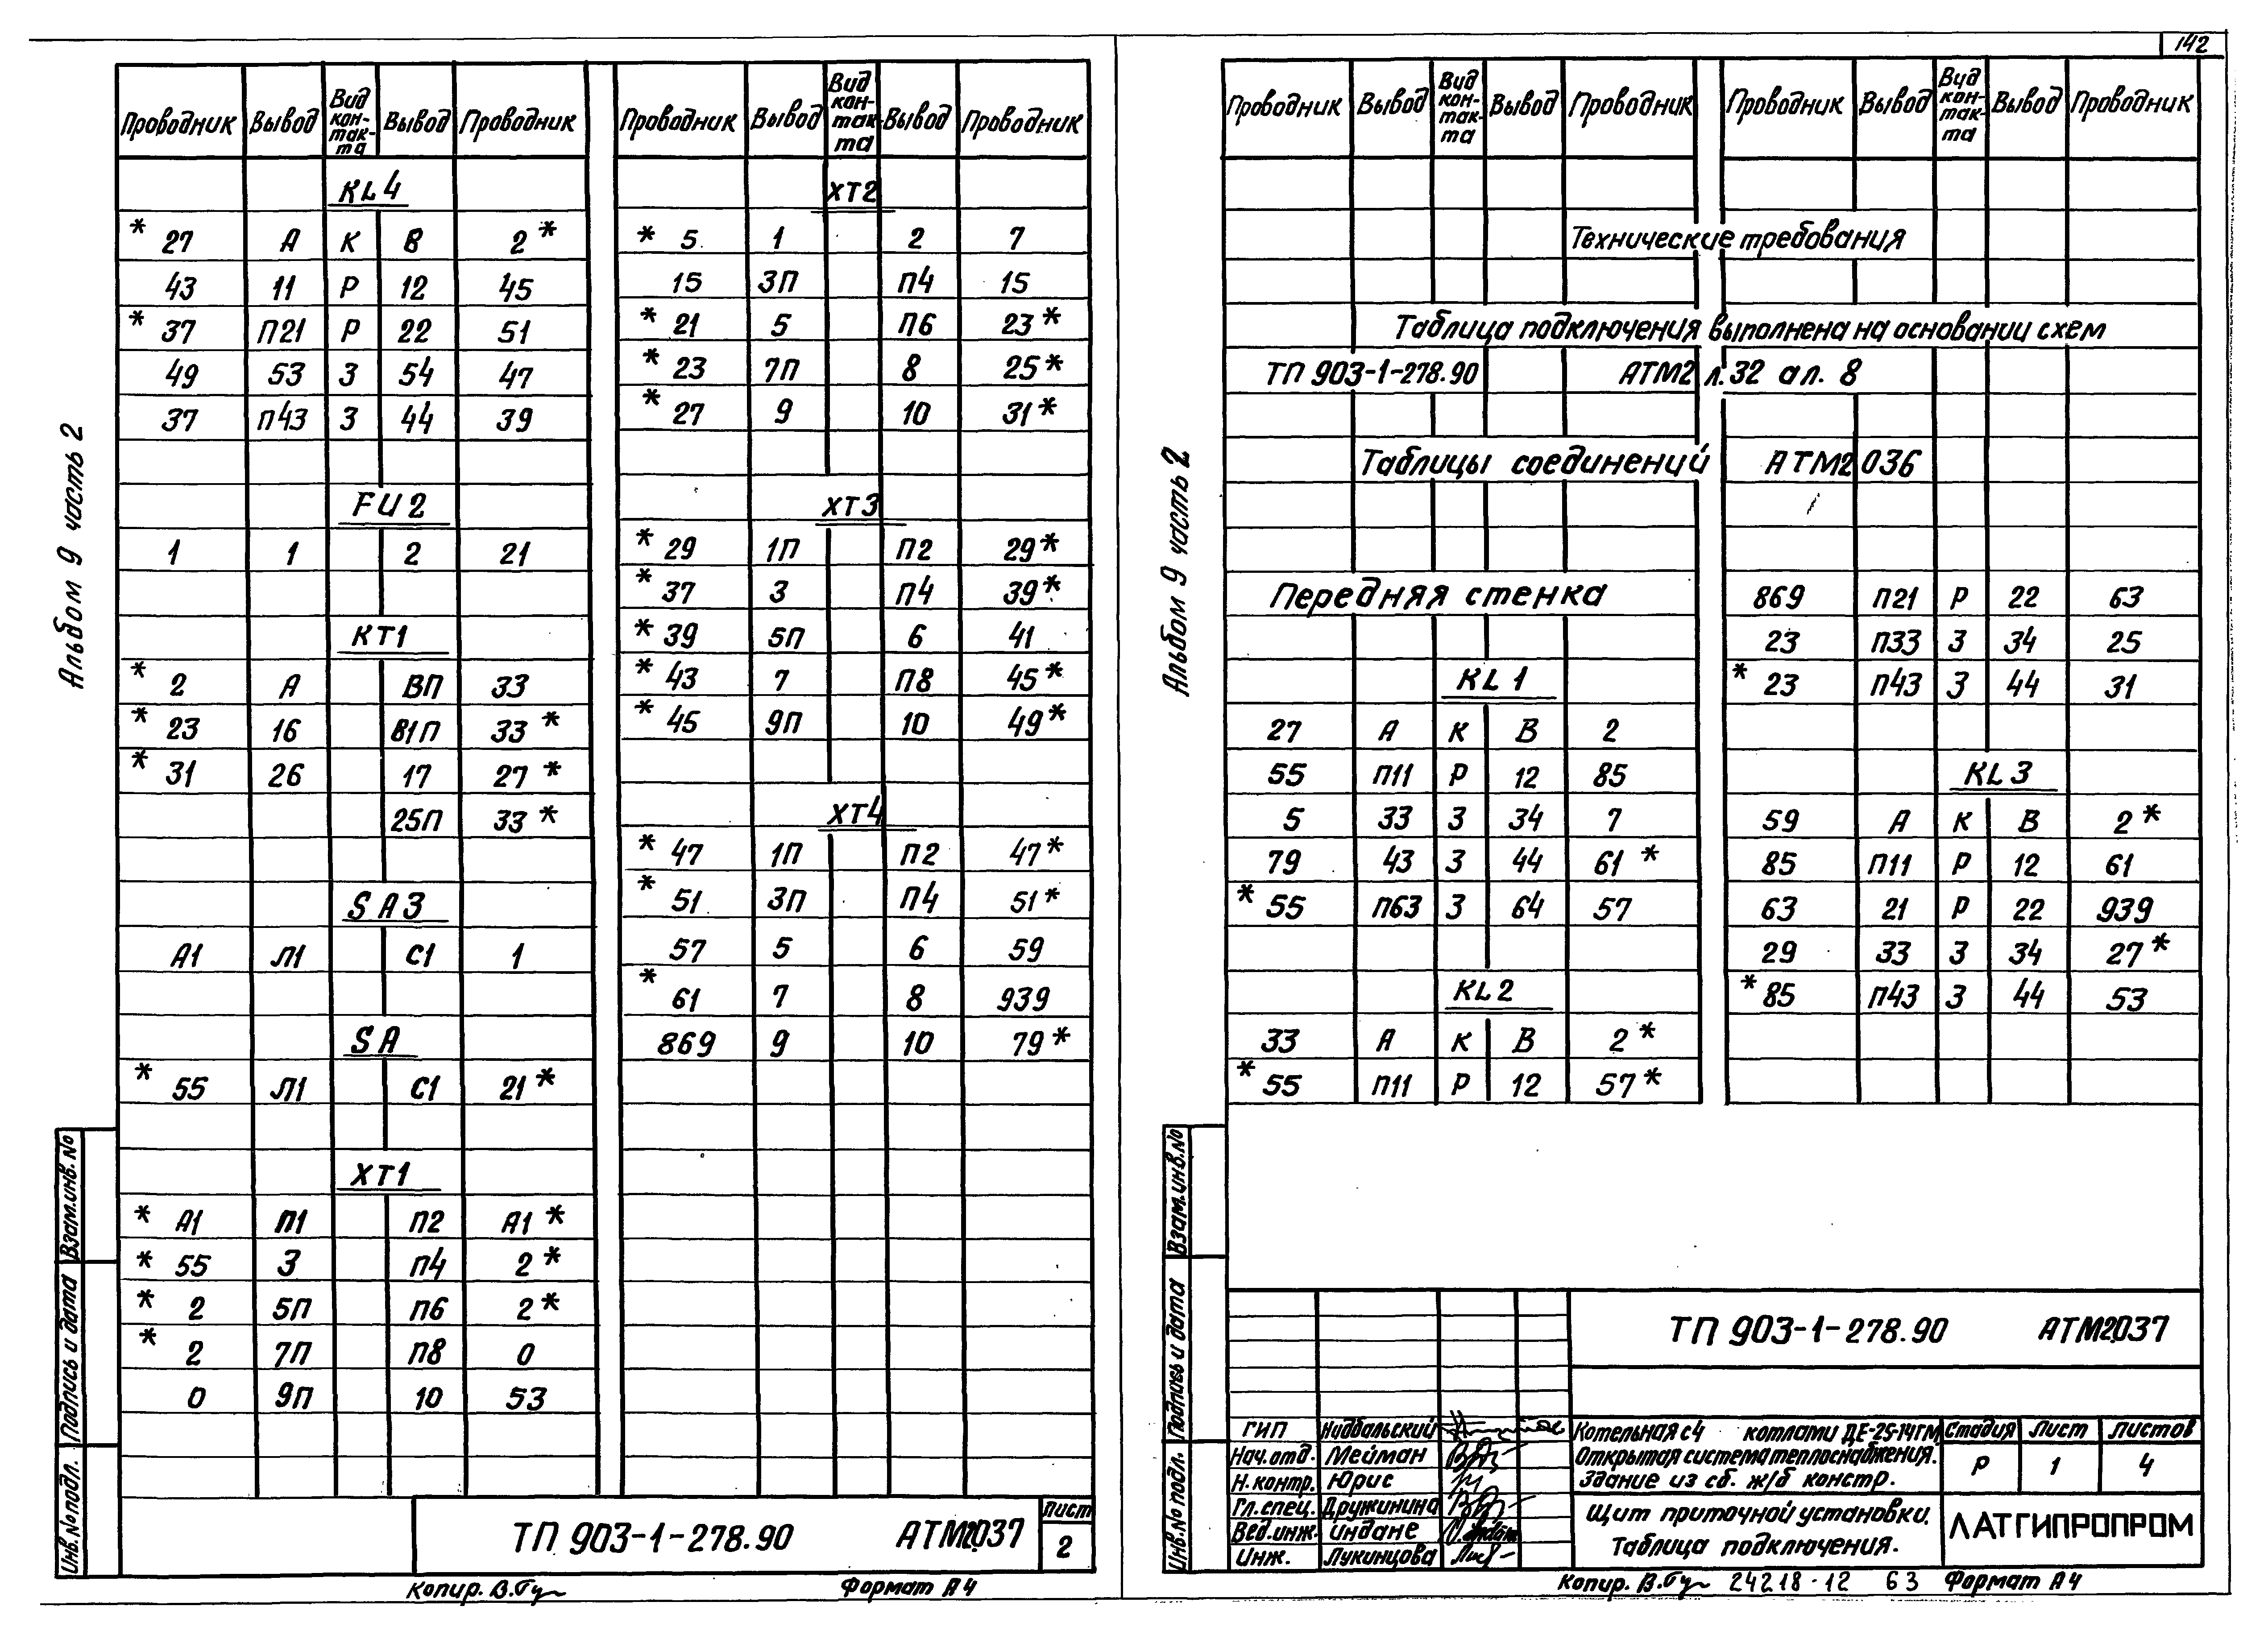 142
Альбом 9 часть 2
Проводник Вывод Вид кон-так-та Вывод Проводник
KL4
* 27 А К В 2 *
43 11 Р 12 45
* 37 П21 Р 22 51
49 53 З 54 47
37 П43 З 44 39
FU2
1 1 2 21
КТ1
* 2 А ВП 33
* 23 16 В1П 33 *
* 31 26 17 27 *
25П 33 *
SA3
А1 Л1 С1 1
SA
* 55 Л1 С1 21 *
ХТ1
* А1 П1 П2 А1 *
* 55 3 П4 2 *
* 2 5П П6 2 *
* 2 7П П8 0
0 9П 10 53
Проводник Вывод Вид кон-так-та Вывод Проводник
ХТ2
* 5 1 2 7
15 3П П4 15
* 21 5 П6 23 *
* 23 7П 8 25 *
* 27 9 10 31 *
ХТ3
* 29 1П П2 29 *
* 37 3 П4 39 *
* 39 5П 6 41
* 43 7 П8 45 *
* 45 9П 10 49 *
ХТ4
* 47 1П П2 47 *
* 51 3П П4 51 *
57 5 6 59
* 61 7 8 939
869 9 10 79 *
Взам.инв.№
Подпись и дата
Инв.№ подл.
ТП 903-1-278.90 АТМ2.037
Лист
2
Копир. Формат А4
Альбом 9 часть 2
Проводник Вывод Вид кон-так-та Вывод Проводник
Проводник Вывод Вид кон-так-та Вывод Проводник
Технические требования
Таблица подключения выполнена на основании схем
ТП 903-1-278.90 АТМ2 л.32 ал. 8
Таблицы соединений АТМ2 036
Передняя стенка
KL1
27 А К В 2
55 П11 Р 12 85
5 33 З 34 7
79 43 З 44 61 *
* 55 П63 З 64 57
KL2
33 А К В 2 *
* 55 П11 Р 12 57 *
869 П21 Р 22 63
23 П33 З 34 25
* 23 П43 З 44 31
KL3
59 А К В 2 *
85 П11 Р 12 61
63 21 Р 22 939
29 33 З 34 27 *
* 85 П43 З 44 53
Взам.инв.№
Подпись и дата
Инв.№ подл.
ТП 903-1-278.90 АТМ2.037
ГИП Нидбальский
Нач.отд. Мейман
Н.контр. Юрис
Гл.спец. Дружинина
Вед.инж. Индане
Инж. Лукинцова
Котельная с 4 котлами ДЕ-25-14ГМ
Открытая система теплоснабжения.
Здание из сб. ж/б констр.
Стадия Лист Листов
Р 1 4
Щит приточной установки.
Таблица подключения.
ЛАТГИПРОПРОМ
Копир. 24218-12 63 Формат А4